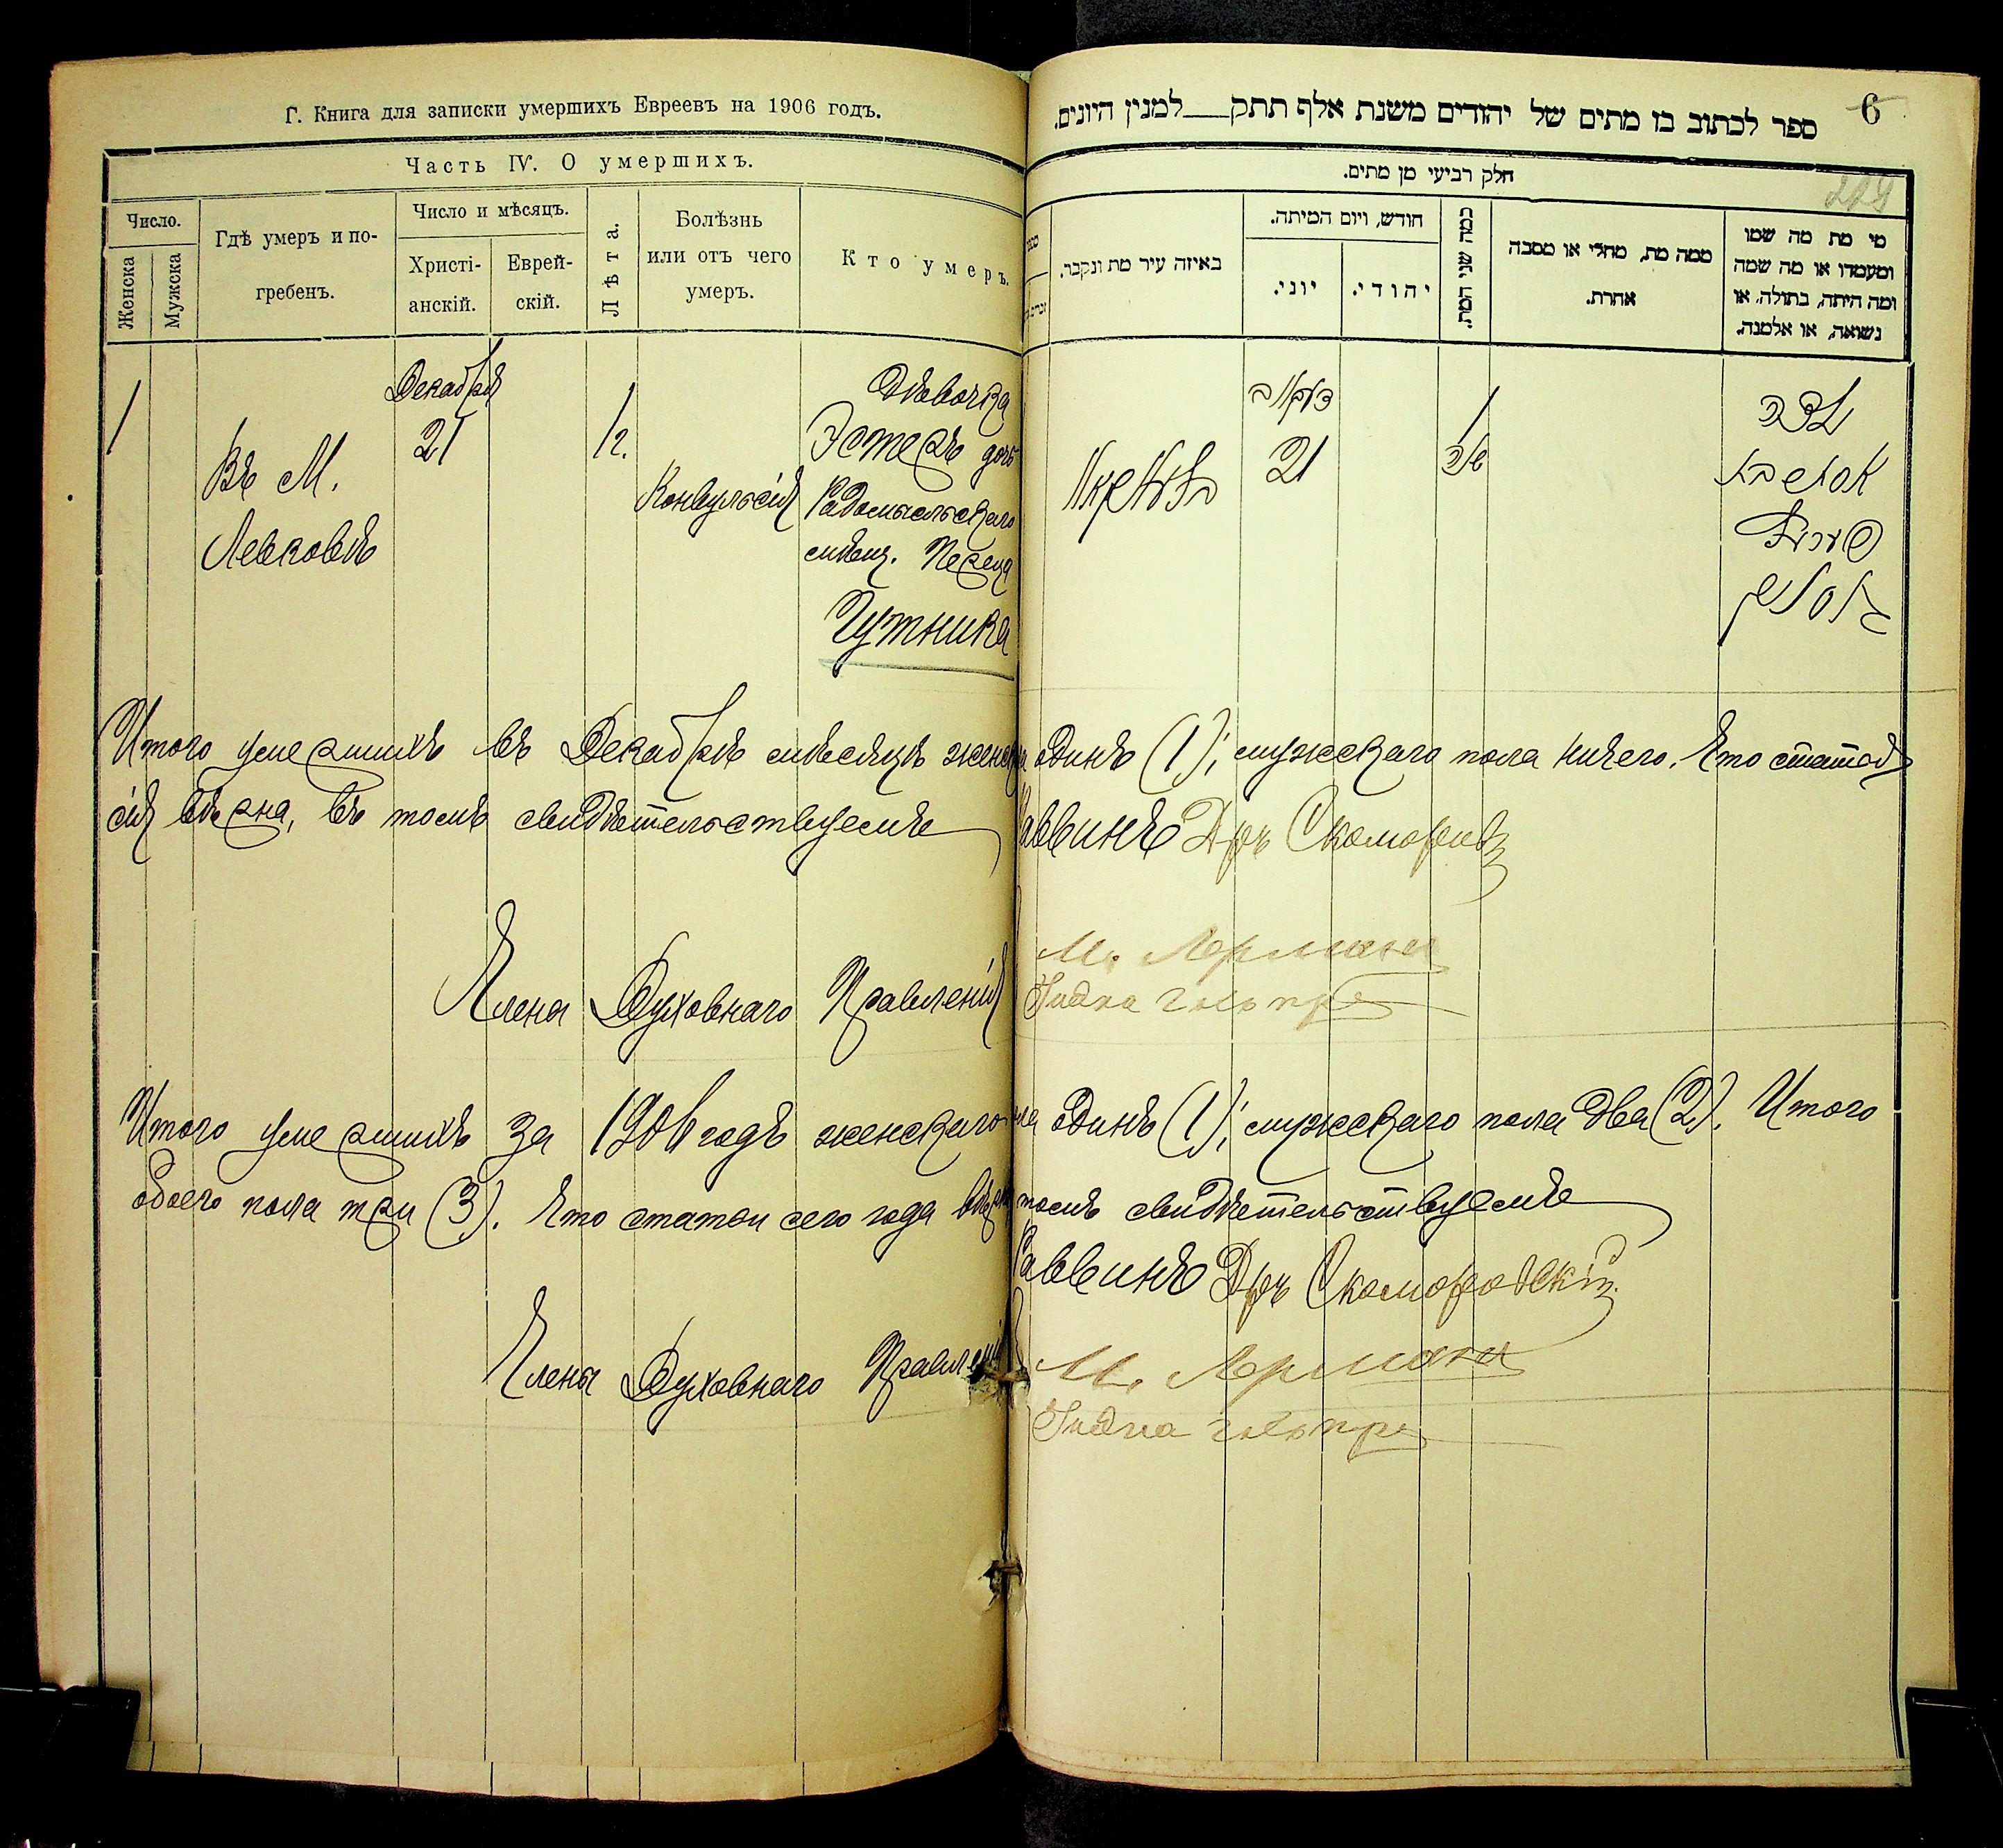 Г. Книга для записки умершихъ Евреевъ на 1906 годъ.
Часть IV. О умершихъ.
Число.
Женска
Мужска
Гдѣ умеръ и по-
гребенъ.
Число и мѣсяцъ.
Христі-
анскій.
Еврей-
скій.
Лѣта.
Болѣзнь
или отъ чего
умеръ.
Кто умеръ.
1
Въ М.
Левковѣ
Декабря
21
1 г.
Конвульсія
Дѣвочка
Эстеръ дочь
Радомысльскаго
мѣщ. Переца
Чутника
6
ספר לכתוב בו מתים של יהודים משנת אלף תתק למנין היונים.
חלק רביעי מן מתים.
באיזה עיר מת ונקבר.
חודש, ויום המיתה.
יוני.
יהודי.
כמה שני המת.
ממה מת, מחלי או מסבה
אחרת.
מי מת מה שמו
ומעמדו או מה שמה
ומה היתה, בתולה, או
נשואה, או אלמנה.
21
1
Итого умершихъ въ Декабрѣ мѣсяцѣ женска одинъ (1); мужескаго пола ничего. Что статья
сія вѣрна, въ томъ свидѣтельствуемъ Раввинъ Дръ Скоморовскій
Члены Духовнаго Правленія М. Лерманъ
Итого умершихъ за 1906 годъ женскаго пола одинъ (1); мужескаго пола два (2). Итого
обоего пола три (3). Что статьи сего года вѣрны томъ свидѣтельствуемъ
Раввинъ Дръ Скоморовскій
Члены Духовнаго Правленія М. Лерманъ